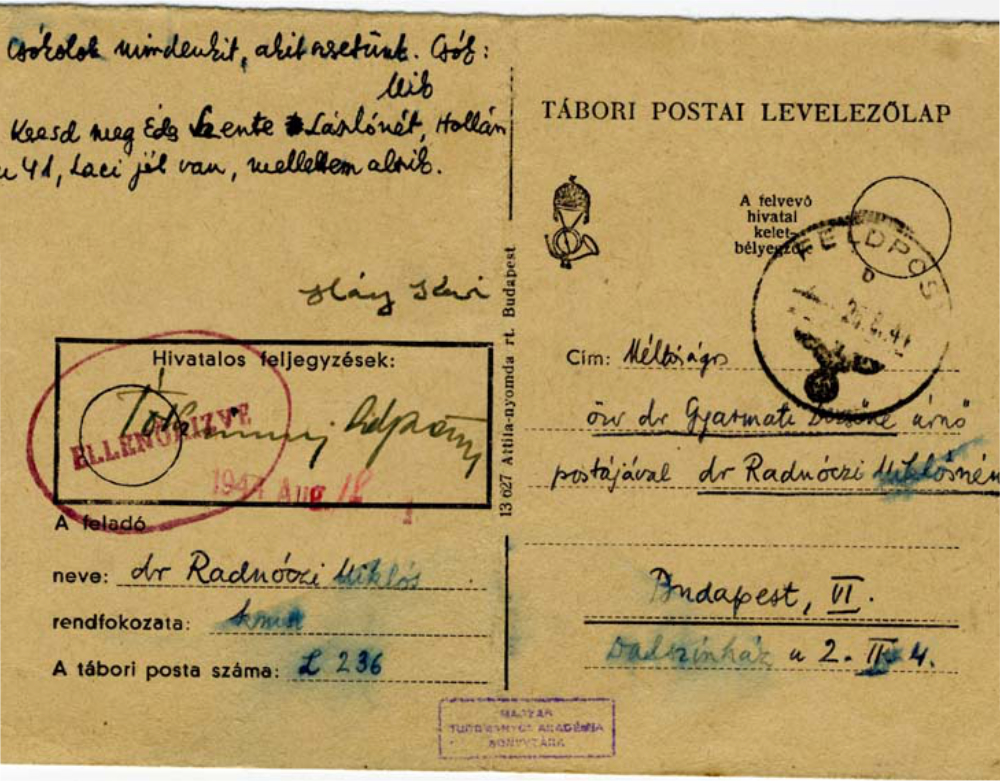 Csókolok mindenkit, akit szeretünk. Csók:
Mik
Keresd meg Édes Szente Lászlónét, Hollán
u 41, Laci jól van, mellettem alszik.
Hivatalos feljegyzések:
ELLENŐRIZVE
1944 Aug. 18
A feladó
neve: dr Radnóczi Miklós
rendfokozata: kmsz
A tábori posta száma: L 236
13 627 Attila-nyomda rt. Budapest
TÁBORI POSTAI LEVELEZŐLAP
A felvevő
hivatal
kelet-
bélyegzője
FELDPOST
b
Cím: Méltóságos
özv dr Gyarmati Dezsőné úrnő
postájával dr Radnóczi Miklósnén
Budapest, VI.
Dalszínház u 2. II. 4.
MAGYAR
TUDOMÁNYOS AKADÉMIA
KÖNYVTÁRA